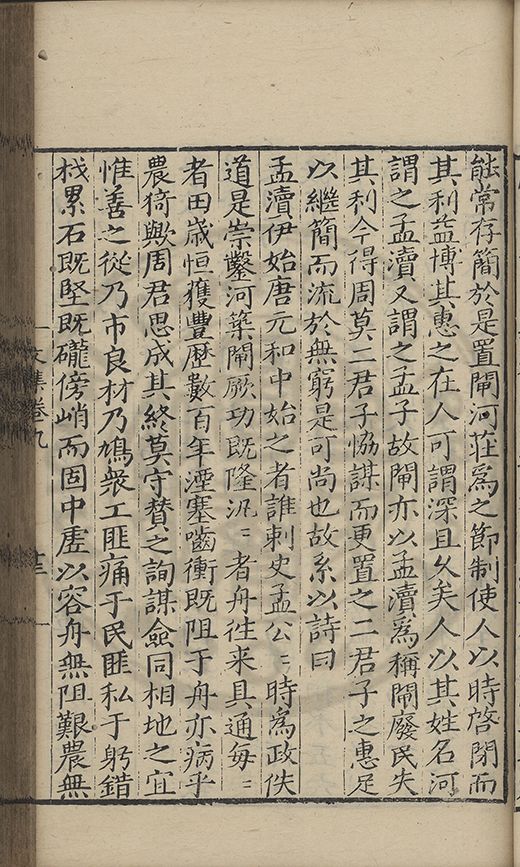 能常存簡於是置閘河莊爲之節制使人以時啓閉而
其利益博其惠之在人可謂深且久矣人以其姓名河
謂之孟瀆又謂之孟子故閘亦以孟瀆爲稱閘廢民失
其利今得周莫二君子恊謀而更置之二君子之惠足
以繼簡而流於無窮是可尚也故系以詩曰
孟瀆伊始唐元和中始之者誰刺史孟公〻時爲政佚
道是崇鑿河築閘厥功既隆汎〻者舟往来具通每〻
者田歲恒獲豐歷數百年湮塞嚙衝既阻于舟亦病乎
農猗歟周君思成其終莫守賛之詢謀僉同相地之宜
惟善之從乃市良材乃鳩衆工匪痛于民匪私于躬錯
栈累石既堅既礲傍峭而固中虛以容舟無阻艱農無
文集卷九
十三